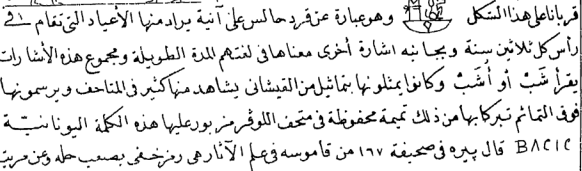 قربانا على هذا الشكل وهو عبارة عن قرد جالس على آنية يراد منها الأعياد التى تقام فى
رأس كل ثلاثين سنة وبجانبه اشارة أخرى معناها فى لغتهم المدة الطويلة ومجموع هذه الأشارات
يقرأ شَبْ أو أُشَبْ وكانوا يمثلونها بتماثيل من القيشانى يشاهد منها كثير فى المتاحف ويرسمونها
فوق التمائم تبركا بها من ذلك تميمة محفوظة فى متحف اللوفر مزبور عليها هذه الكلمة اليونانية
BACIC قال پيره فى صحيفة ١٦٧ من قاموسه فى علم الآثار هى رمز خفى يصعب حله وعن مريت